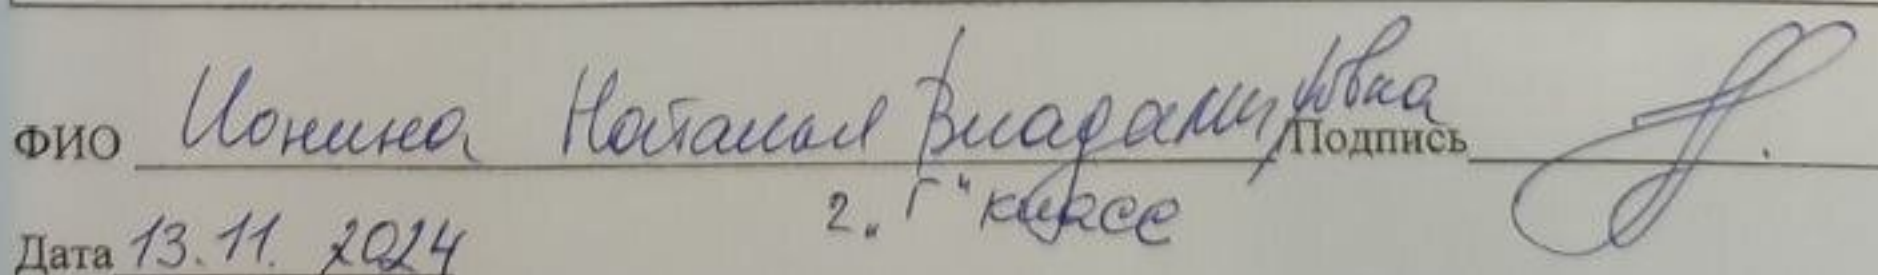 ФИО Ионина Наталья Владимировна Подпись
2 „Г“ класс
Дата 13.11.2024